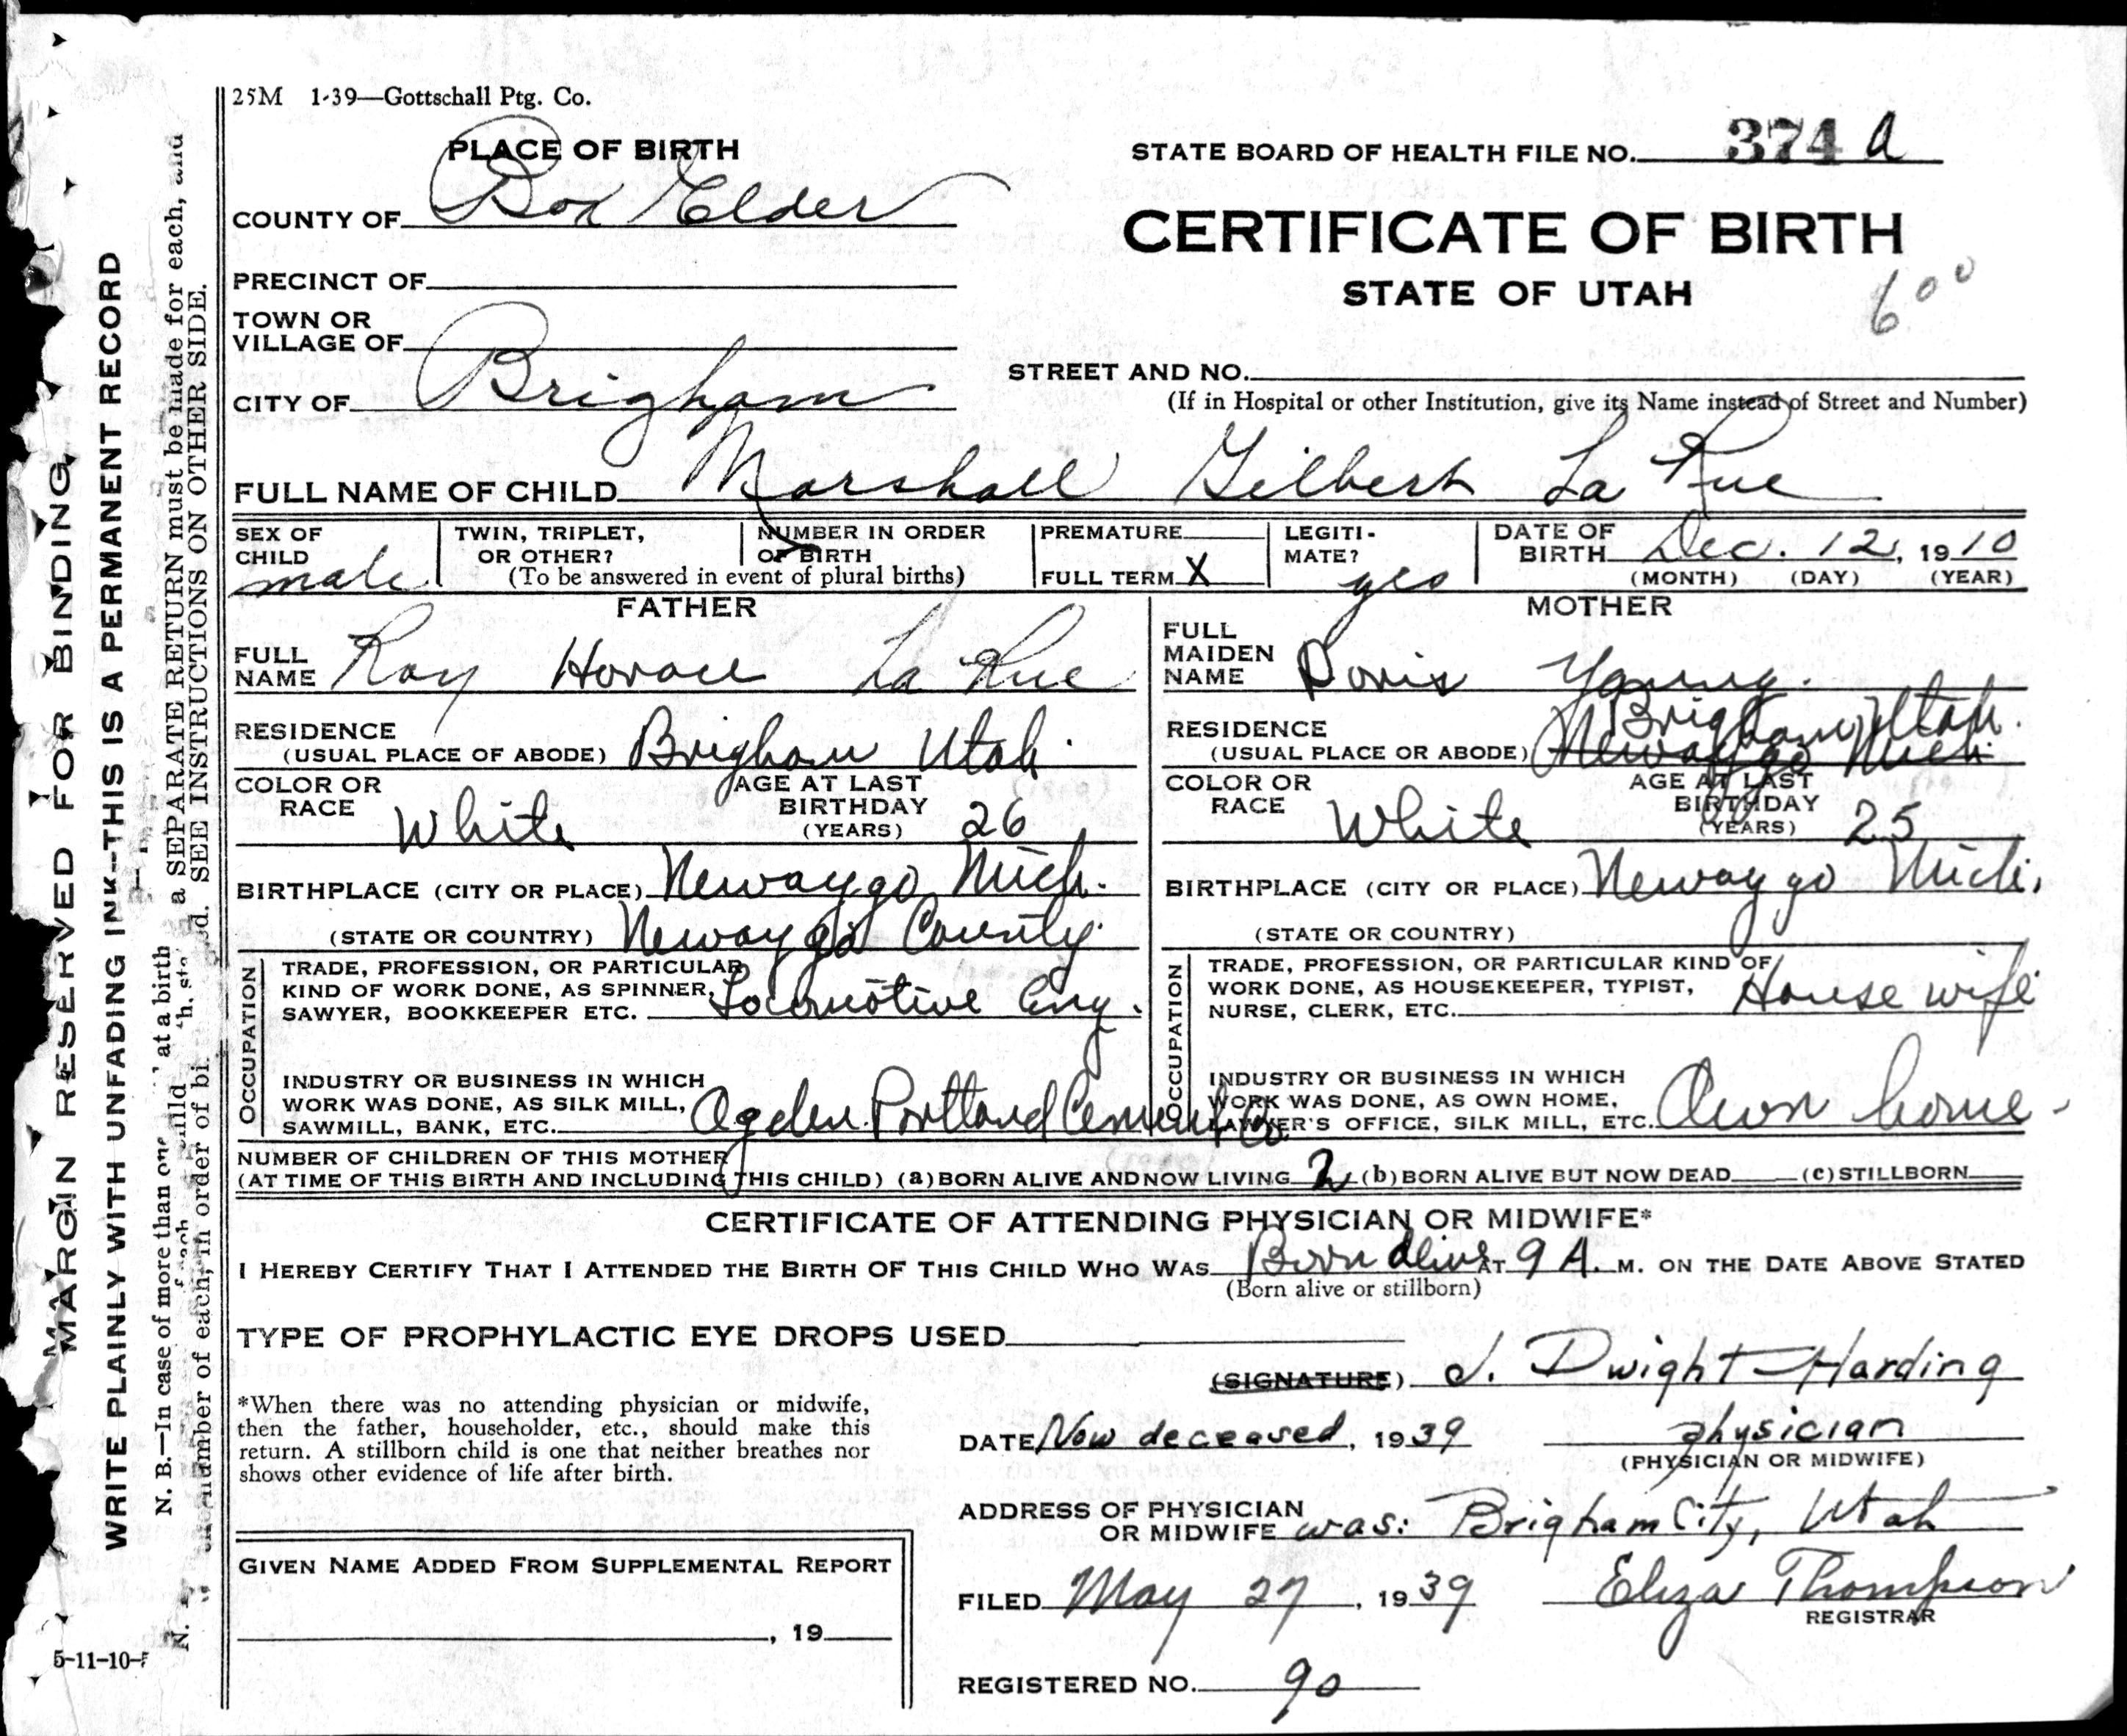 25M 1-39—Gottschall Ptg. Co.
PLACE OF BIRTH
STATE BOARD OF HEALTH FILE NO. 374 a
COUNTY OF Box Elder
CERTIFICATE OF BIRTH
STATE OF UTAH
6 00
PRECINCT OF
TOWN OR
VILLAGE OF
CITY OF Brigham
STREET AND NO.
(If in Hospital or other Institution, give its Name instead of Street and Number)
FULL NAME OF CHILD Marshall Gilbert La Rue
SEX OF CHILD male
TWIN, TRIPLET, OR OTHER?
NUMBER IN ORDER OF BIRTH
(To be answered in event of plural births)
PREMATURE
FULL TERM X
LEGITI-MATE? yes
DATE OF BIRTH Dec. 12, 1910
(MONTH) (DAY) (YEAR)
FATHER
FULL NAME Ray Horace La Rue
RESIDENCE
(USUAL PLACE OF ABODE) Brigham Utah.
COLOR OR RACE White
AGE AT LAST BIRTHDAY (YEARS) 26
BIRTHPLACE (CITY OR PLACE) Newaygo, Mich.
(STATE OR COUNTRY) Newaygo County.
OCCUPATION
TRADE, PROFESSION, OR PARTICULAR
KIND OF WORK DONE, AS SPINNER,
SAWYER, BOOKKEEPER ETC. Locomotive Eng.
INDUSTRY OR BUSINESS IN WHICH
WORK WAS DONE, AS SILK MILL,
SAWMILL, BANK, ETC. Ogden Portland Cement Co.
MOTHER
FULL MAIDEN NAME Doris Young.
RESIDENCE Brigham, Utah.
(USUAL PLACE OR ABODE) Newaygo Mich.
COLOR OR RACE White
AGE AT LAST BIRTHDAY (YEARS) 25
BIRTHPLACE (CITY OR PLACE) Newaygo Mich.
(STATE OR COUNTRY)
OCCUPATION
TRADE, PROFESSION, OR PARTICULAR KIND OF
WORK DONE, AS HOUSEKEEPER, TYPIST,
NURSE, CLERK, ETC. House wife
INDUSTRY OR BUSINESS IN WHICH
WORK WAS DONE, AS OWN HOME,
LAWYER'S OFFICE, SILK MILL, ETC. Own home.
NUMBER OF CHILDREN OF THIS MOTHER
(AT TIME OF THIS BIRTH AND INCLUDING THIS CHILD) (a) BORN ALIVE AND NOW LIVING 2 (b) BORN ALIVE BUT NOW DEAD (c) STILLBORN
CERTIFICATE OF ATTENDING PHYSICIAN OR MIDWIFE*
I HEREBY CERTIFY THAT I ATTENDED THE BIRTH OF THIS CHILD WHO WAS Born alive AT 9 A. M. ON THE DATE ABOVE STATED
(Born alive or stillborn)
TYPE OF PROPHYLACTIC EYE DROPS USED
(SIGNATURE) J. Dwight Harding
*When there was no attending physician or midwife,
then the father, householder, etc., should make this
return. A stillborn child is one that neither breathes nor
shows other evidence of life after birth.
DATE Now deceased, 1939 physician
(PHYSICIAN OR MIDWIFE)
ADDRESS OF PHYSICIAN
OR MIDWIFE was: Brigham City, Utah
GIVEN NAME ADDED FROM SUPPLEMENTAL REPORT
, 19
FILED May 27, 1939 Eliza Thompson
REGISTRAR
REGISTERED NO. 90
MARGIN RESERVED FOR BINDING
WRITE PLAINLY WITH UNFADING INK--THIS IS A PERMANENT RECORD
N. B.—In case of more than one at a birth a SEPARATE RETURN must be made for each, and
number of each, in order of SEE INSTRUCTIONS ON OTHER SIDE.
5-11-10-